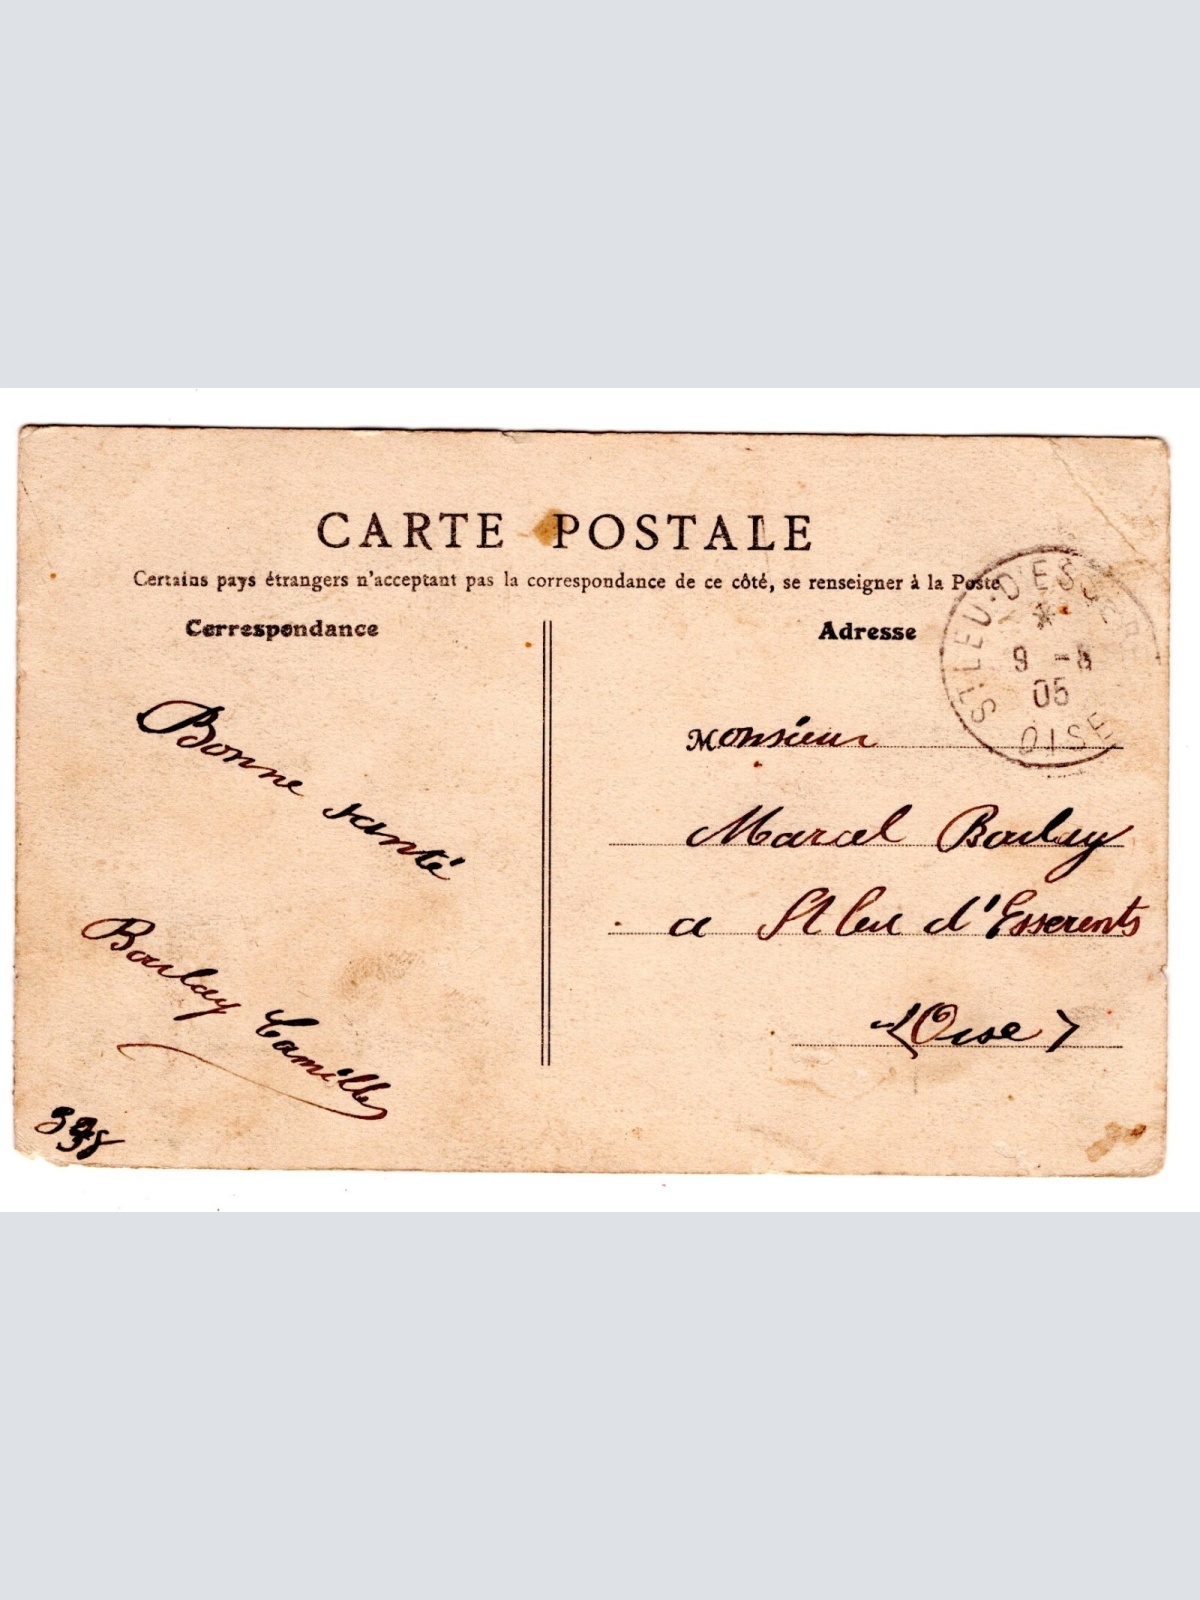 CARTE POSTALE
Certains pays étrangers n'acceptent pas la correspondance de ce côté, se renseigner à la Poste
Correspondance
Adresse
ST-LEU-D'ESSERE
9 -
05
OISE
Monsieur
Marcel Boulay
a St leu d'Esserents
(Oise)
Bonne santé
Boulay Camille